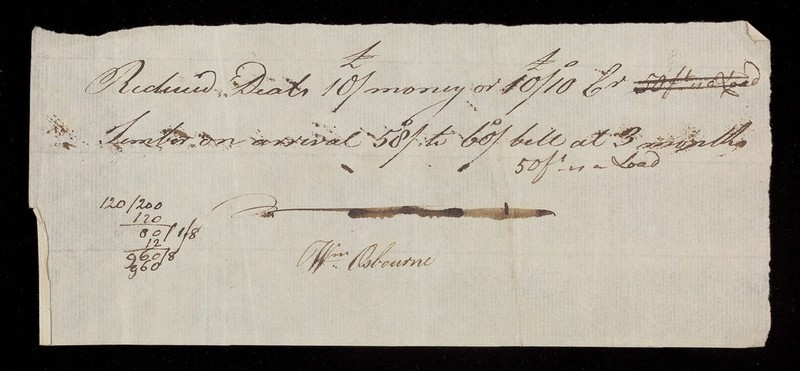 Reduced Deals 10/ money or 10/10 Cr 50ft is a Load
Timber on arrival 58/ to 60/ bill at 3 months
50ft is a Load
120/200
120
80/1/8
12
960/8
960
Wm. Osbourne